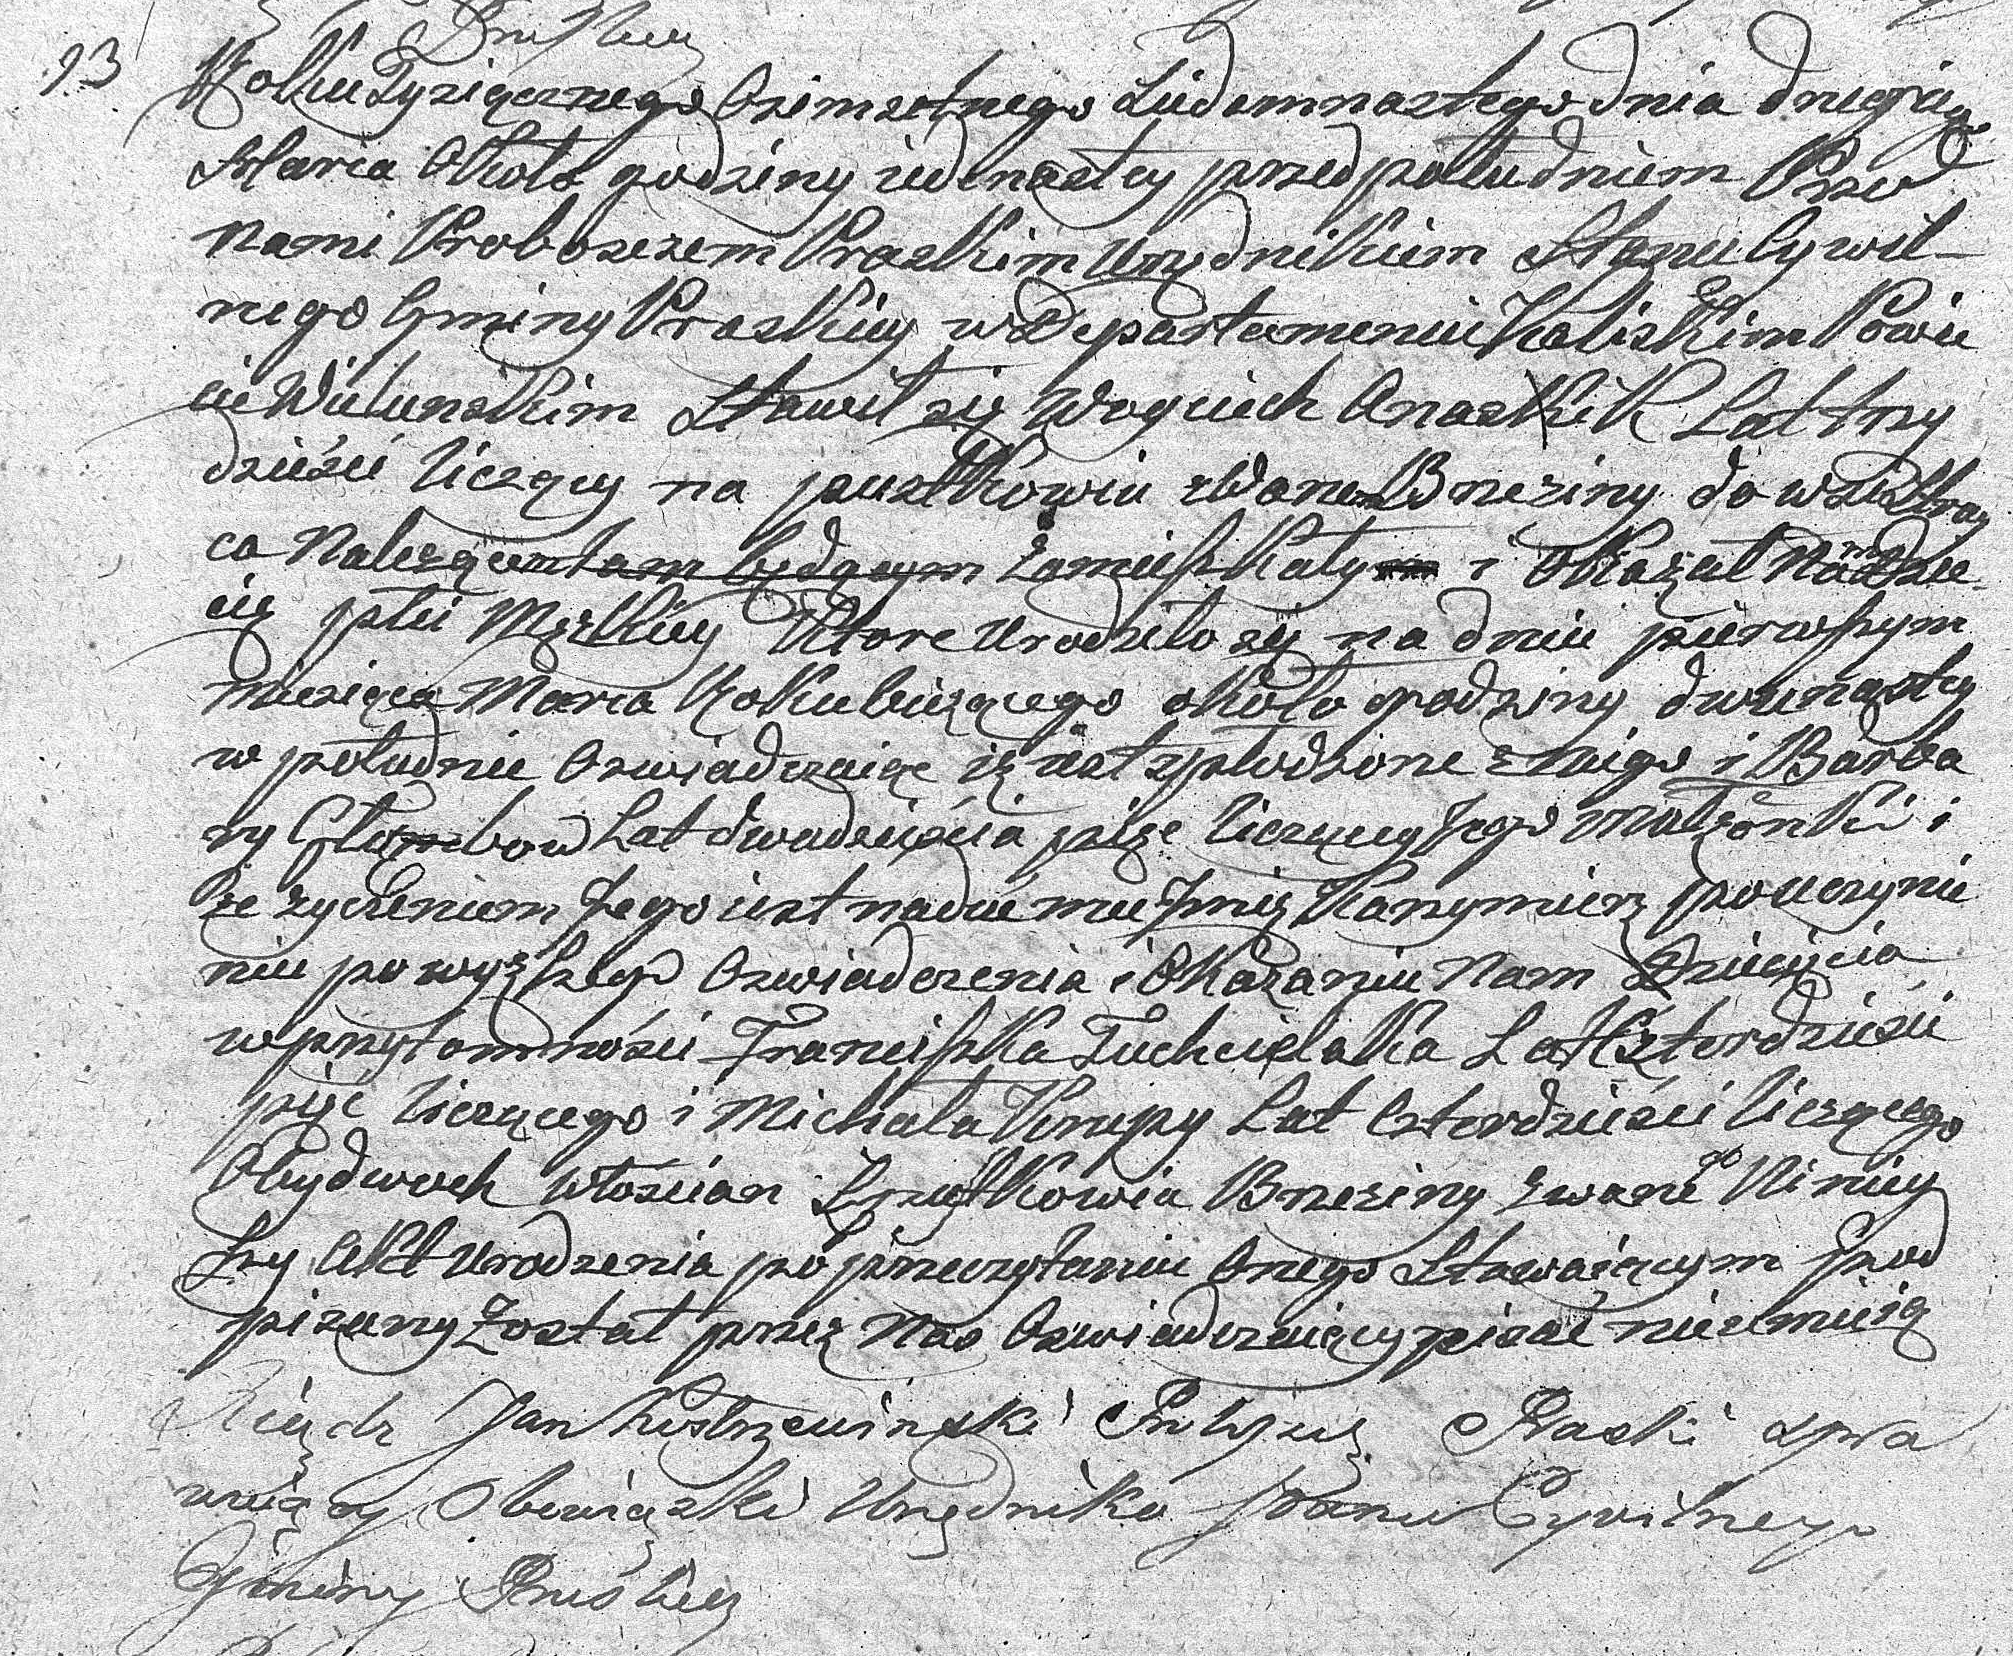 93
Roku Tysiącznego Osimsetnego Siedemnastego dnia drugiego
Marca Około godziny iedenastey przed południem Przed
Nami Proboszczem Praskim Urzędnikiem Stanu Cywil-
nego Gminy Praskiey w Departamencie Kaliskim Powie
cie Wieluńskim Stawił się Woyciech Lat trzy
dzieści liczący na pustkowiu zwane Brzeziny do wsi
ca Należące tam będącym Zamieszkały i Okazał Nam Dzie
cię płci Męzkiey Które urodziło się na dniu pierwszym
miesiąca Marca Roku bieżącego około godziny dwunastey
w południe Oswiadczaiąc iż iest spłodzone z niego i Barba
ry Lat dwadzieścia pięc liczącey Jego małżonki i
że życzeniem Jego iest nadać mu Jmię Kazymierz po uczynie
niu powyższego Oswiadczenia i Okazaniu Nam Dziecięcia
w przytomności Franciszka Lat Czterdzieści
pięć liczącego i Michała Krupy Lat Czterdzieści liczącego
Obydwoch włościan z pustkowia Brzeziny zwane go Niniey
szy Akt Urodzenia po przeczytaniu Onego Stawaiącym pod
pisany został przez Nas Oswiadczaiący pisać nieumieią
Xiądz Jan Praski spra
wuiący Obowiązki Urzędnika Stanu Cywilnego
Gminy Praskiey